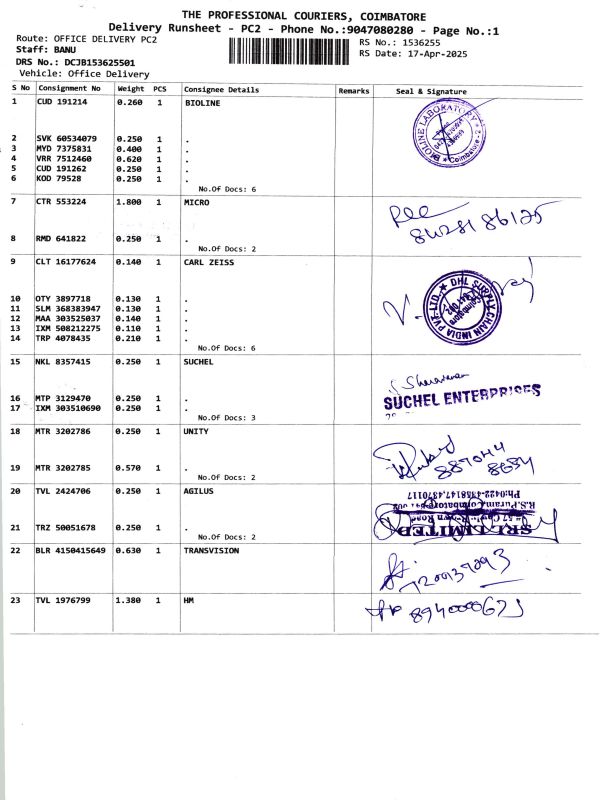 THE PROFESSIONAL COURIERS, COIMBATORE
Delivery Runsheet - PC2 - Phone No.:9047080280 - Page No.:1
Route: OFFICE DELIVERY PC2
RS No.: 1536255
Staff: BANU
RS Date: 17-Apr-2025
DRS No.: DCJB153625501
Vehicle: Office Delivery
S No Consignment No Weight PCS Consignee Details Remarks Seal & Signature
1 CUD 191214 0.260 1 BIOLINE
BIOLINE LABORATORY Coimbatore-2
2 SVK 60534079 0.250 1 .
3 MYD 7375831 0.400 1 .
4 VRR 7512460 0.620 1 .
5 CUD 191262 0.250 1 .
6 KOD 79528 0.250 1 .
No.Of Docs: 6
7 CTR 553224 1.800 1 MICRO
8 RMD 641822 0.250 1 .
No.Of Docs: 2
9 CLT 16177624 0.140 1 CARL ZEISS
DHL SUPPLY CHAIN INDIA PVT. LTD.
10 OTY 3897718 0.130 1 .
11 SLM 368383947 0.130 1 .
12 MAA 303525037 0.140 1 .
13 IXM 508212275 0.110 1 .
14 TRP 4078435 0.210 1 .
No.Of Docs: 6
15 NKL 8357415 0.250 1 SUCHEL
SUCHEL ENTERPRISES
16 MTP 3129470 0.250 1 .
17 IXM 303510690 0.250 1 .
No.Of Docs: 3
18 MTR 3202786 0.250 1 UNITY
887044
8634
19 MTR 3202785 0.570 1 .
No.Of Docs: 2
20 TVL 2424706 0.250 1 AGILUS
SRL LIMITED
R.S.Puram, Coimbatore
Ph:0422-4358147,4370117
21 TRZ 50051678 0.250 1 .
No.Of Docs: 2
22 BLR 4150415649 0.630 1 TRANSVISION
23 TVL 1976799 1.380 1 HM